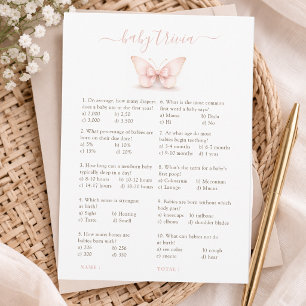 baby trivia
1. On average, how many diapers does a baby use in the first year?
a) 2,000 b) 2,50
c) 3,000 d) 3,500
2. What percentage of babies are born on their due date?
a) 5% b) 10%
c) 15% d) 20%
3. How long can a newborn baby typically sleep in a day?
a) 8-10 hours b) 15-16 hours
c) 14-17 hours d) 18-20 hours
4. Which sense is strongest at birth?
a) Sight b) Hearing
c) Taste d) Smell
5. How many bones are babies born with?
a) 206 b) 256
c) 300 d) 350
6. What is the most common first word a baby says?
a) Mama b) Dada
c) Hi d) No
7. At what age do most babies begin teething?
a) 3-4 months b) 6-7 months
c) 9-10 months d) 1 year
8. What's the term for a baby's first poop?
a) Colostrum b) Meconium
c) Lanugo d) Mucus
9. Babies are born without which body part?
a) kneecaps b) tailbone
c) elbows d) shoulder blades
10. What can babies not do at birth?
a) see color b) cough
c) sneeze d) hear
NAME:
TOTAL: